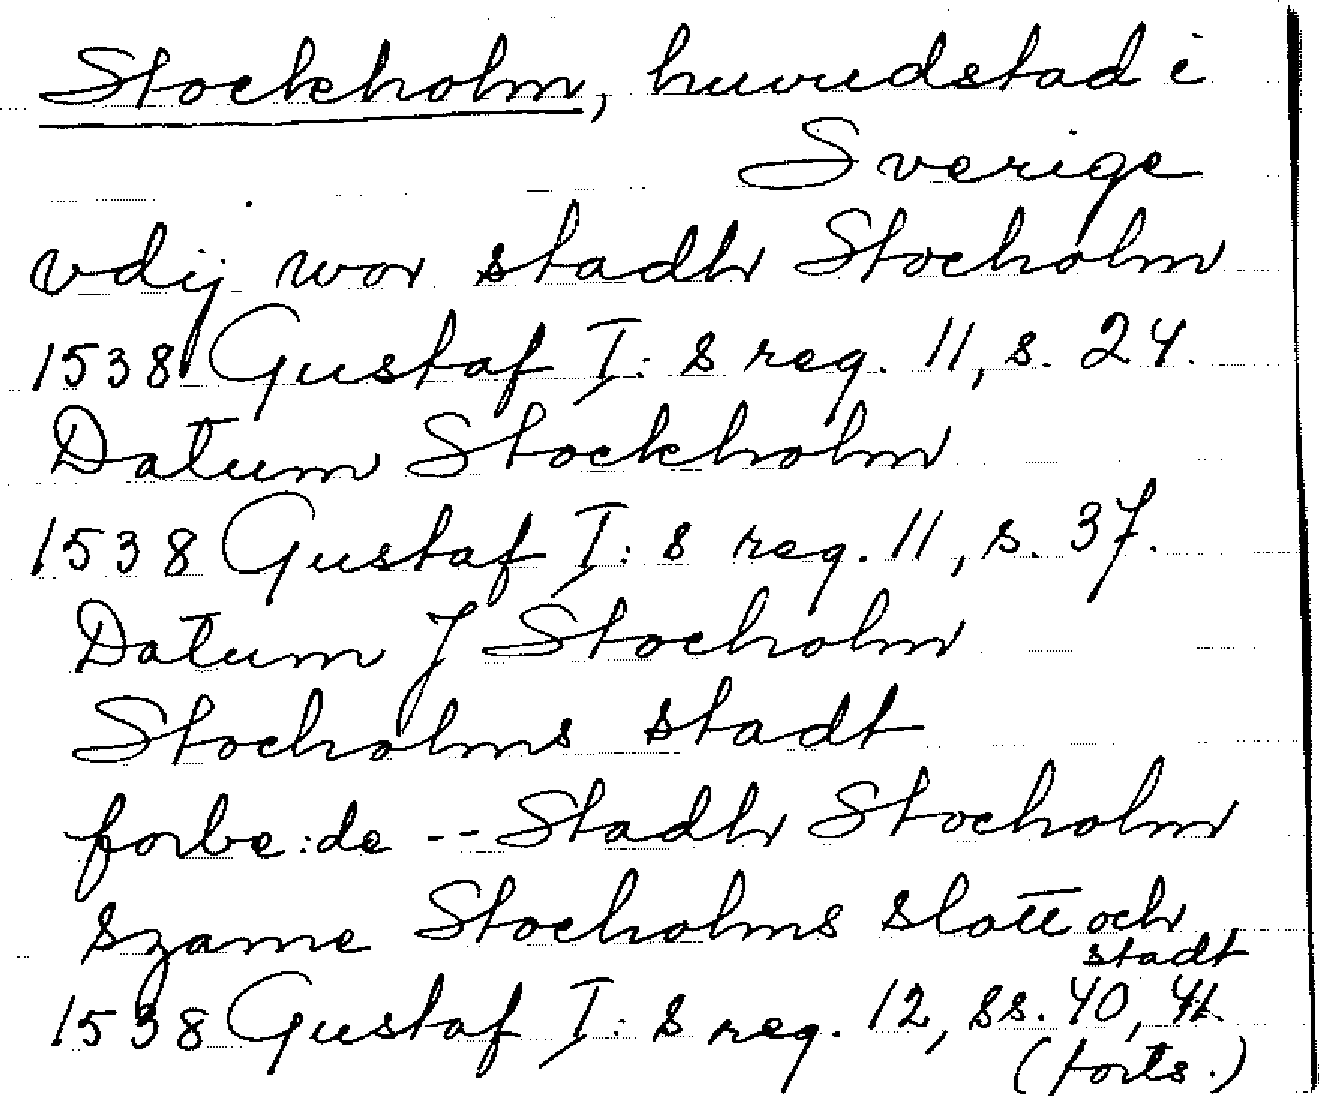 Stockholm, huvudstad i
Sverige
vdij wor stadh Stocholm
1538 Gustaf I:s reg. 11, s. 24.
Datum Stockholm
1538 Gustaf I:s reg. 11, s. 37.
Datum J Stocholm
Stocholms stadt
forbe:de -- Stadh Stocholm
szame Stocholms slott och
stadt
1538 Gustaf I:s reg. 12, ss. 40, 41.
(forts.)